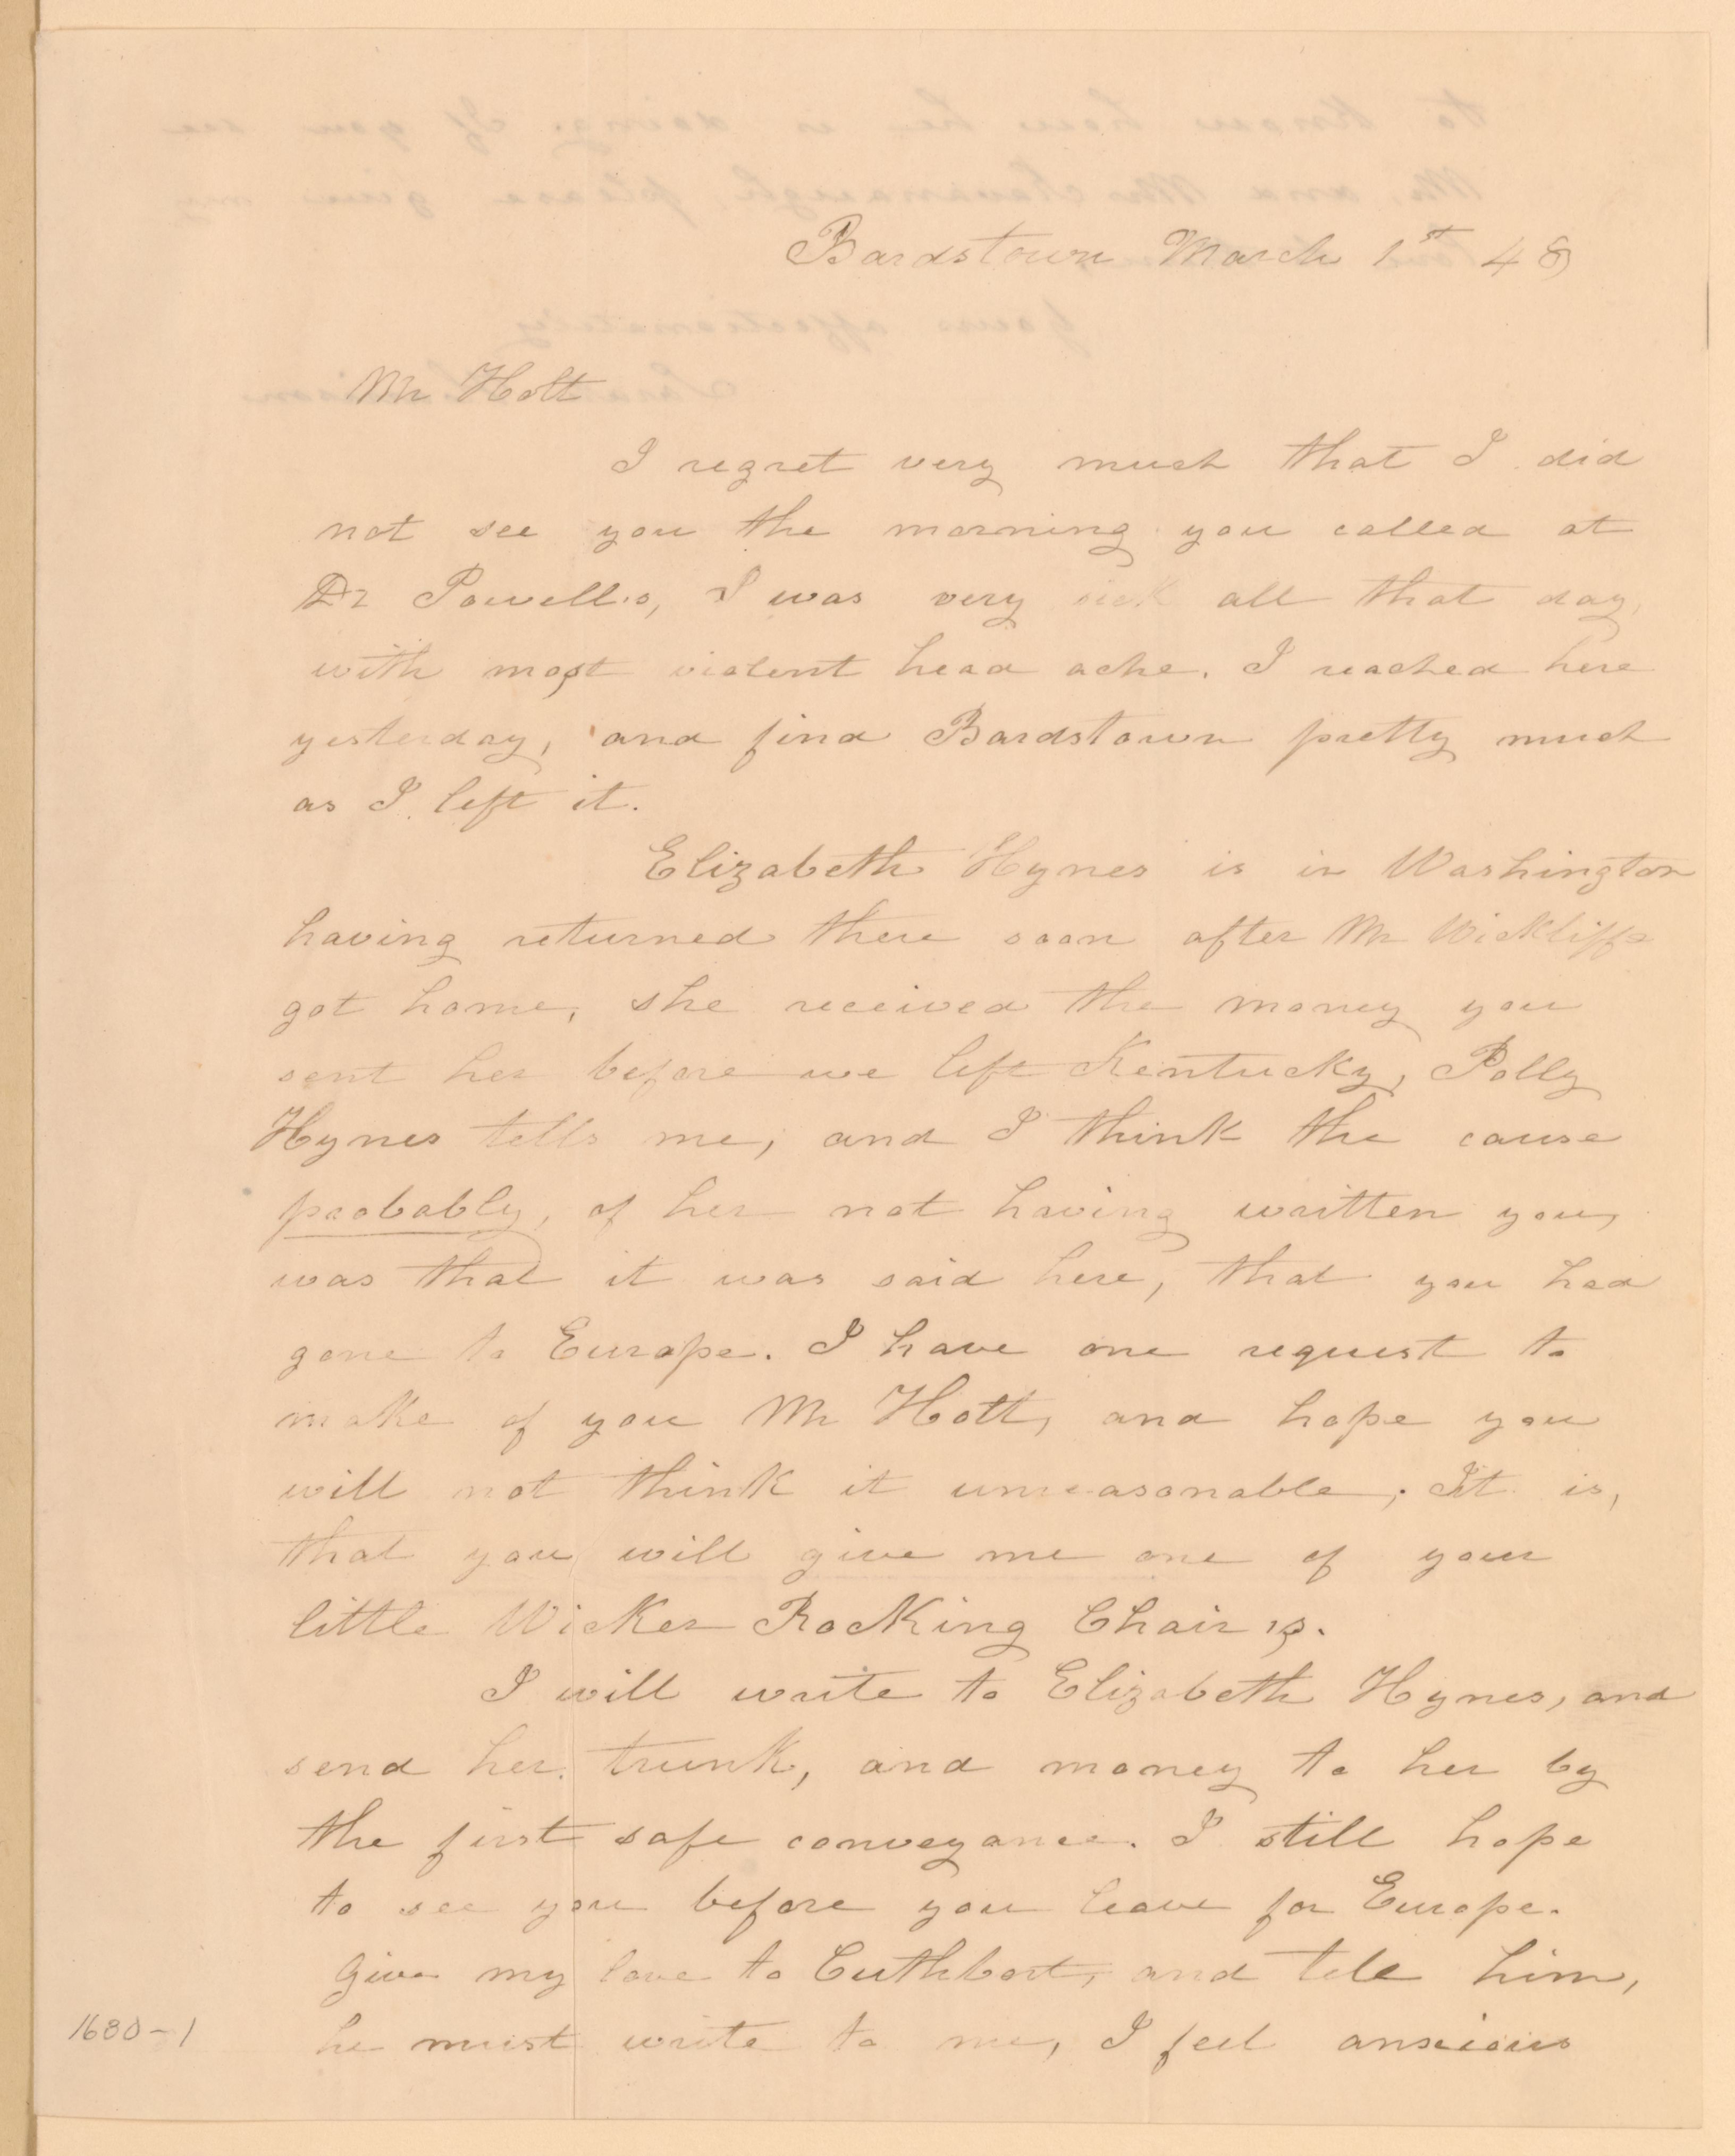 Bardstown March 1st 48
Mr Holt
I regret very much that I did
not see you the morning you called at
Dr Powell's, I was very sick all that day,
with most violent head ache. I reached here
yesterday, and find Bardstown pretty much
as I left it.
Elizabeth Hynes is in Washington
having returned there soon after Mr Wickliffe
got home, she received the money you
sent her before we left Kentucky, Polly
Hynes tells me, and I think the cause
probably, of her not having written you,
was that it was said here, that you had
gone to Europe. I have one request to
make of you Mr Holt, and hope you
will not think it unreasonable, It is,
that you will give me one of your
little Wicker Rocking Chairs.
I will write to Elizabeth Hynes, and
send her trunk, and money to her by
the first safe conveyance. I still hope
to see you before you leave for Europe.
Give my love to Cuthbert, and tell him,
he must write to me, I feel anxious
1680-1